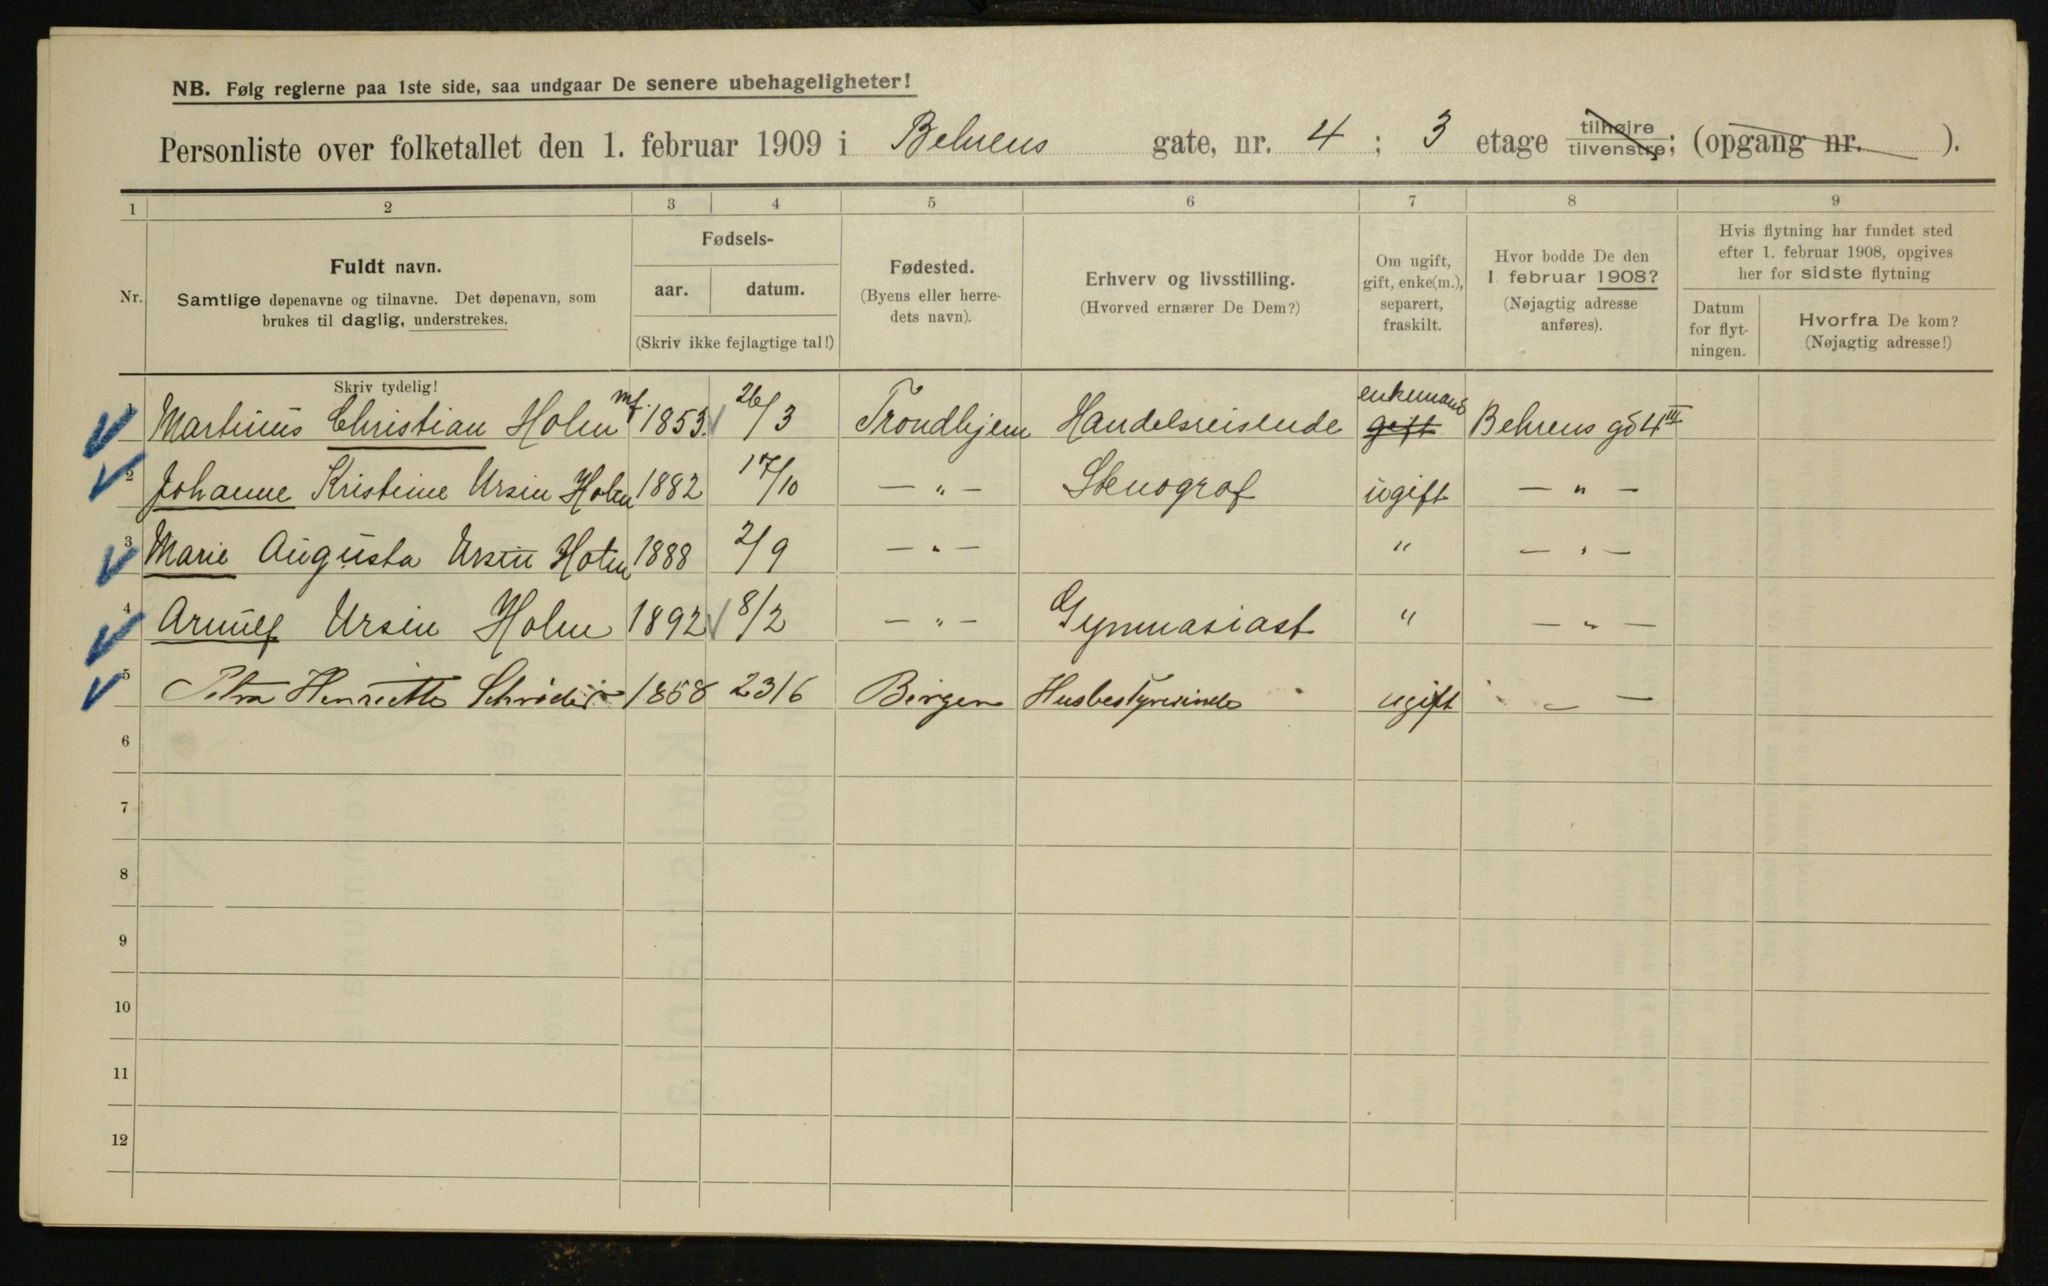 NB. Følg reglerne paa 1ste side, saa undgaar De senere ubehageligheter!
Personliste over folketallet den 1. februar 1909 i Behrens gate, nr. 4 ; 3 etage tilhøjre tilvenstre; (opgang nr. ).
1 2 3 4 5 6 7 8 9
Nr.
Fuldt navn.
Samtlige døpenavne og tilnavne. Det døpenavn, som
brukes til daglig, understrekes.
Fødsels-
aar. datum.
(Skriv ikke fejlagtige tal!)
Fødested.
(Byens eller herre-
dets navn).
Erhverv og livsstilling.
(Hvorved ernærer De Dem?)
Om ugift,
gift, enke(m.),
separert,
fraskilt.
Hvor bodde De den
1. februar 1908?
(Nøjagtig adresse
anføres).
Hvis flytning har fundet sted
efter 1. februar 1908, opgives
her for sidste flytning
Datum
for flyt-
ningen.
Hvorfra De kom?
(Nøjagtig adresse!)
Skriv tydelig!
enkemand
1 Martinus Christian Holm 1853. 26/3 Trondhjem Handelsreisende gift Behrens gd 4 III
2 Johanne Kristine Ursin Holm 1882 17/10 — „ — Stenograf ugift — „ —
3 Marie Augusta Ursin Holm 1888 2/9 — „ — „ — „ —
4 Arnulf Ursin Holm 1892 8/2 — „ — Gymnasiast „ — „ —
5 Petra Henriette Schrøder 1858 23/6 Bergen Husbestyrerinde ugift — „ —
6
7
8
9
10
11
12